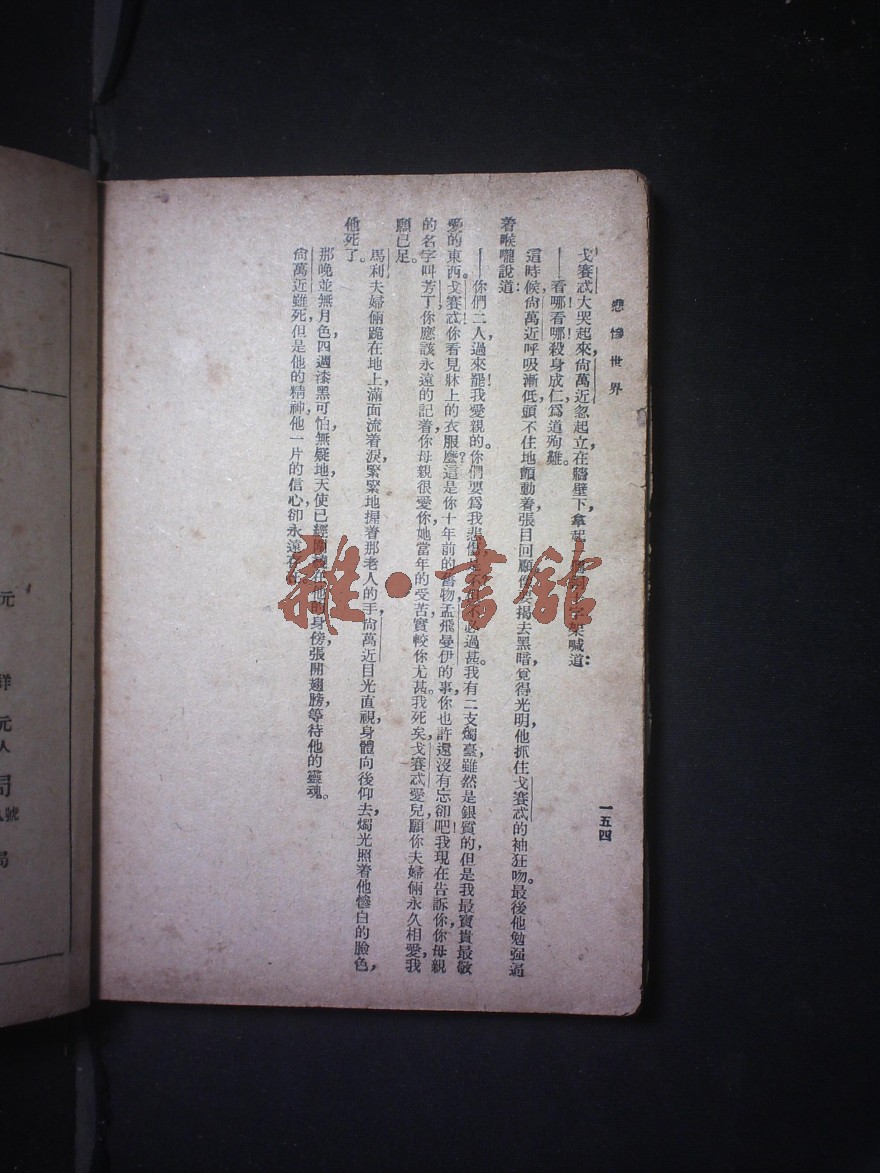 悲慘世界
戈賽忒大哭起來，尙萬近忽起立在牆壁下，拿起 十字架喊道：
——看哪！看哪！殺身成仁，爲道殉難。
這時候，尙萬近呼吸漸低，頭不住地顫動着，張目回顧， 揭去黑暗，覓得光明，他抓住戈賽忒的袖狂吻。最後他勉强逼
着喉嚨說道：
——你們二人，過來罷！我愛親的。你們要爲我悲傷， 不必過甚。我有二支燭臺，雖然是銀質的，但是我最寶貴最敬
愛的東西。戈賽忒！你看見牀上的衣服麼？這是你十年前的舊物，孟飛曼伊的事，你也許還沒有忘卻吧！我現在告訴你，你母親
的名字叫芳丁，你應該永遠的記着，你母親很愛你，她當年的受苦，實較你尤甚。我死矣，戈賽忒愛兒，願你夫婦倆永久相愛，我
願已足。
馬利夫婦倆跪在地上，滿面流着淚，緊緊地握着那老人的手，尙萬近目光直視，身體向後仰去，燭光照着他慘白的臉色，
他死了。
那晚並無月色，四週漆黑可怕，無疑地，天使已經 在他的身傍，張開翅膀，等待他的靈魂。
尙萬近雖死，但是他的精神，他一片的信心，卻永遠
一五四
雜·書館
元
詳
元
人
司
號
局